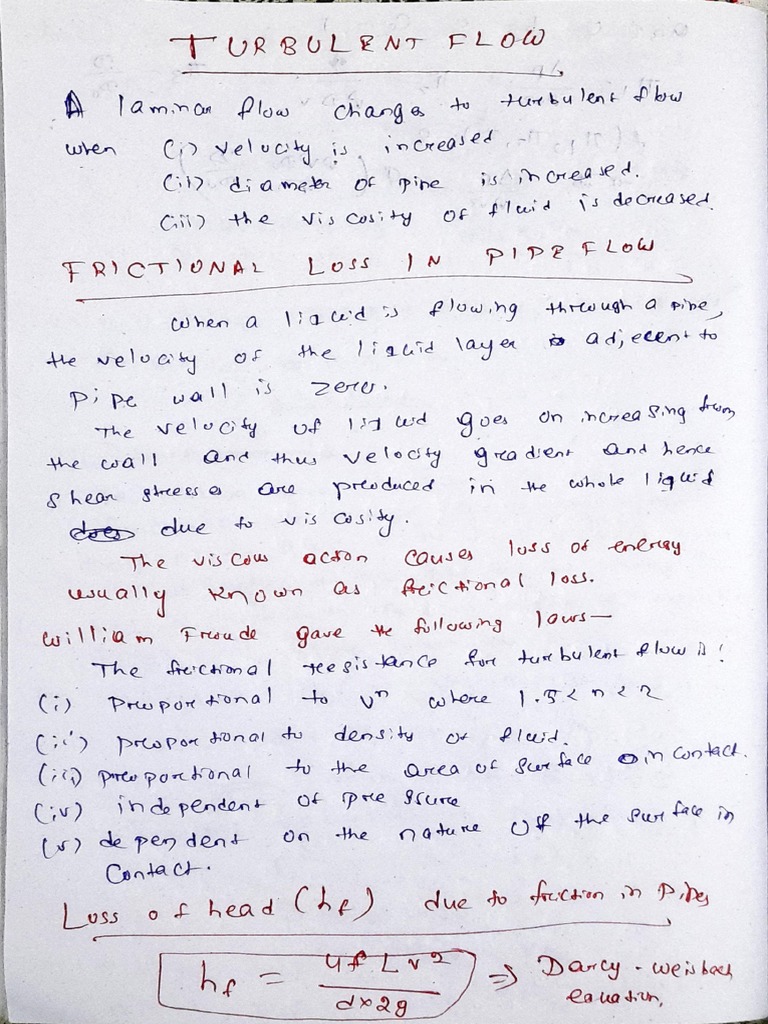 TURBULENT FLOW
A laminar flow changes to turbulent flow
when (i) velocity is increased
(ii) diameter of pipe is increased.
(iii) the viscosity of fluid is decreased.
FRICTIONAL LOSS IN PIPE FLOW
When a liquid is flowing through a pipe,
the velocity of the liquid layer adjecent to
pipe wall is zero.
The velocity of liquid goes on increasing from
the wall and thus velocity gradient and hence
shear stresses are produced in the whole liquid
due to viscosity.
The viscous action causes loss of energy
usually known as frictional loss.
William Froude gave the following laws—
The frictional resistance for turbulent flow is:
(i) proportional to vⁿ where 1.5 < n < 2
(ii) proportional to density of fluid.
(iii) proportional to the area of surface in contact.
(iv) independent of pressure
(v) dependent on the nature off the surface in
contact.
Loss of head (hf) due to friction in pipes
hf = 4f L v² / d×2g ⇒ Darcy-weisbach
equation,